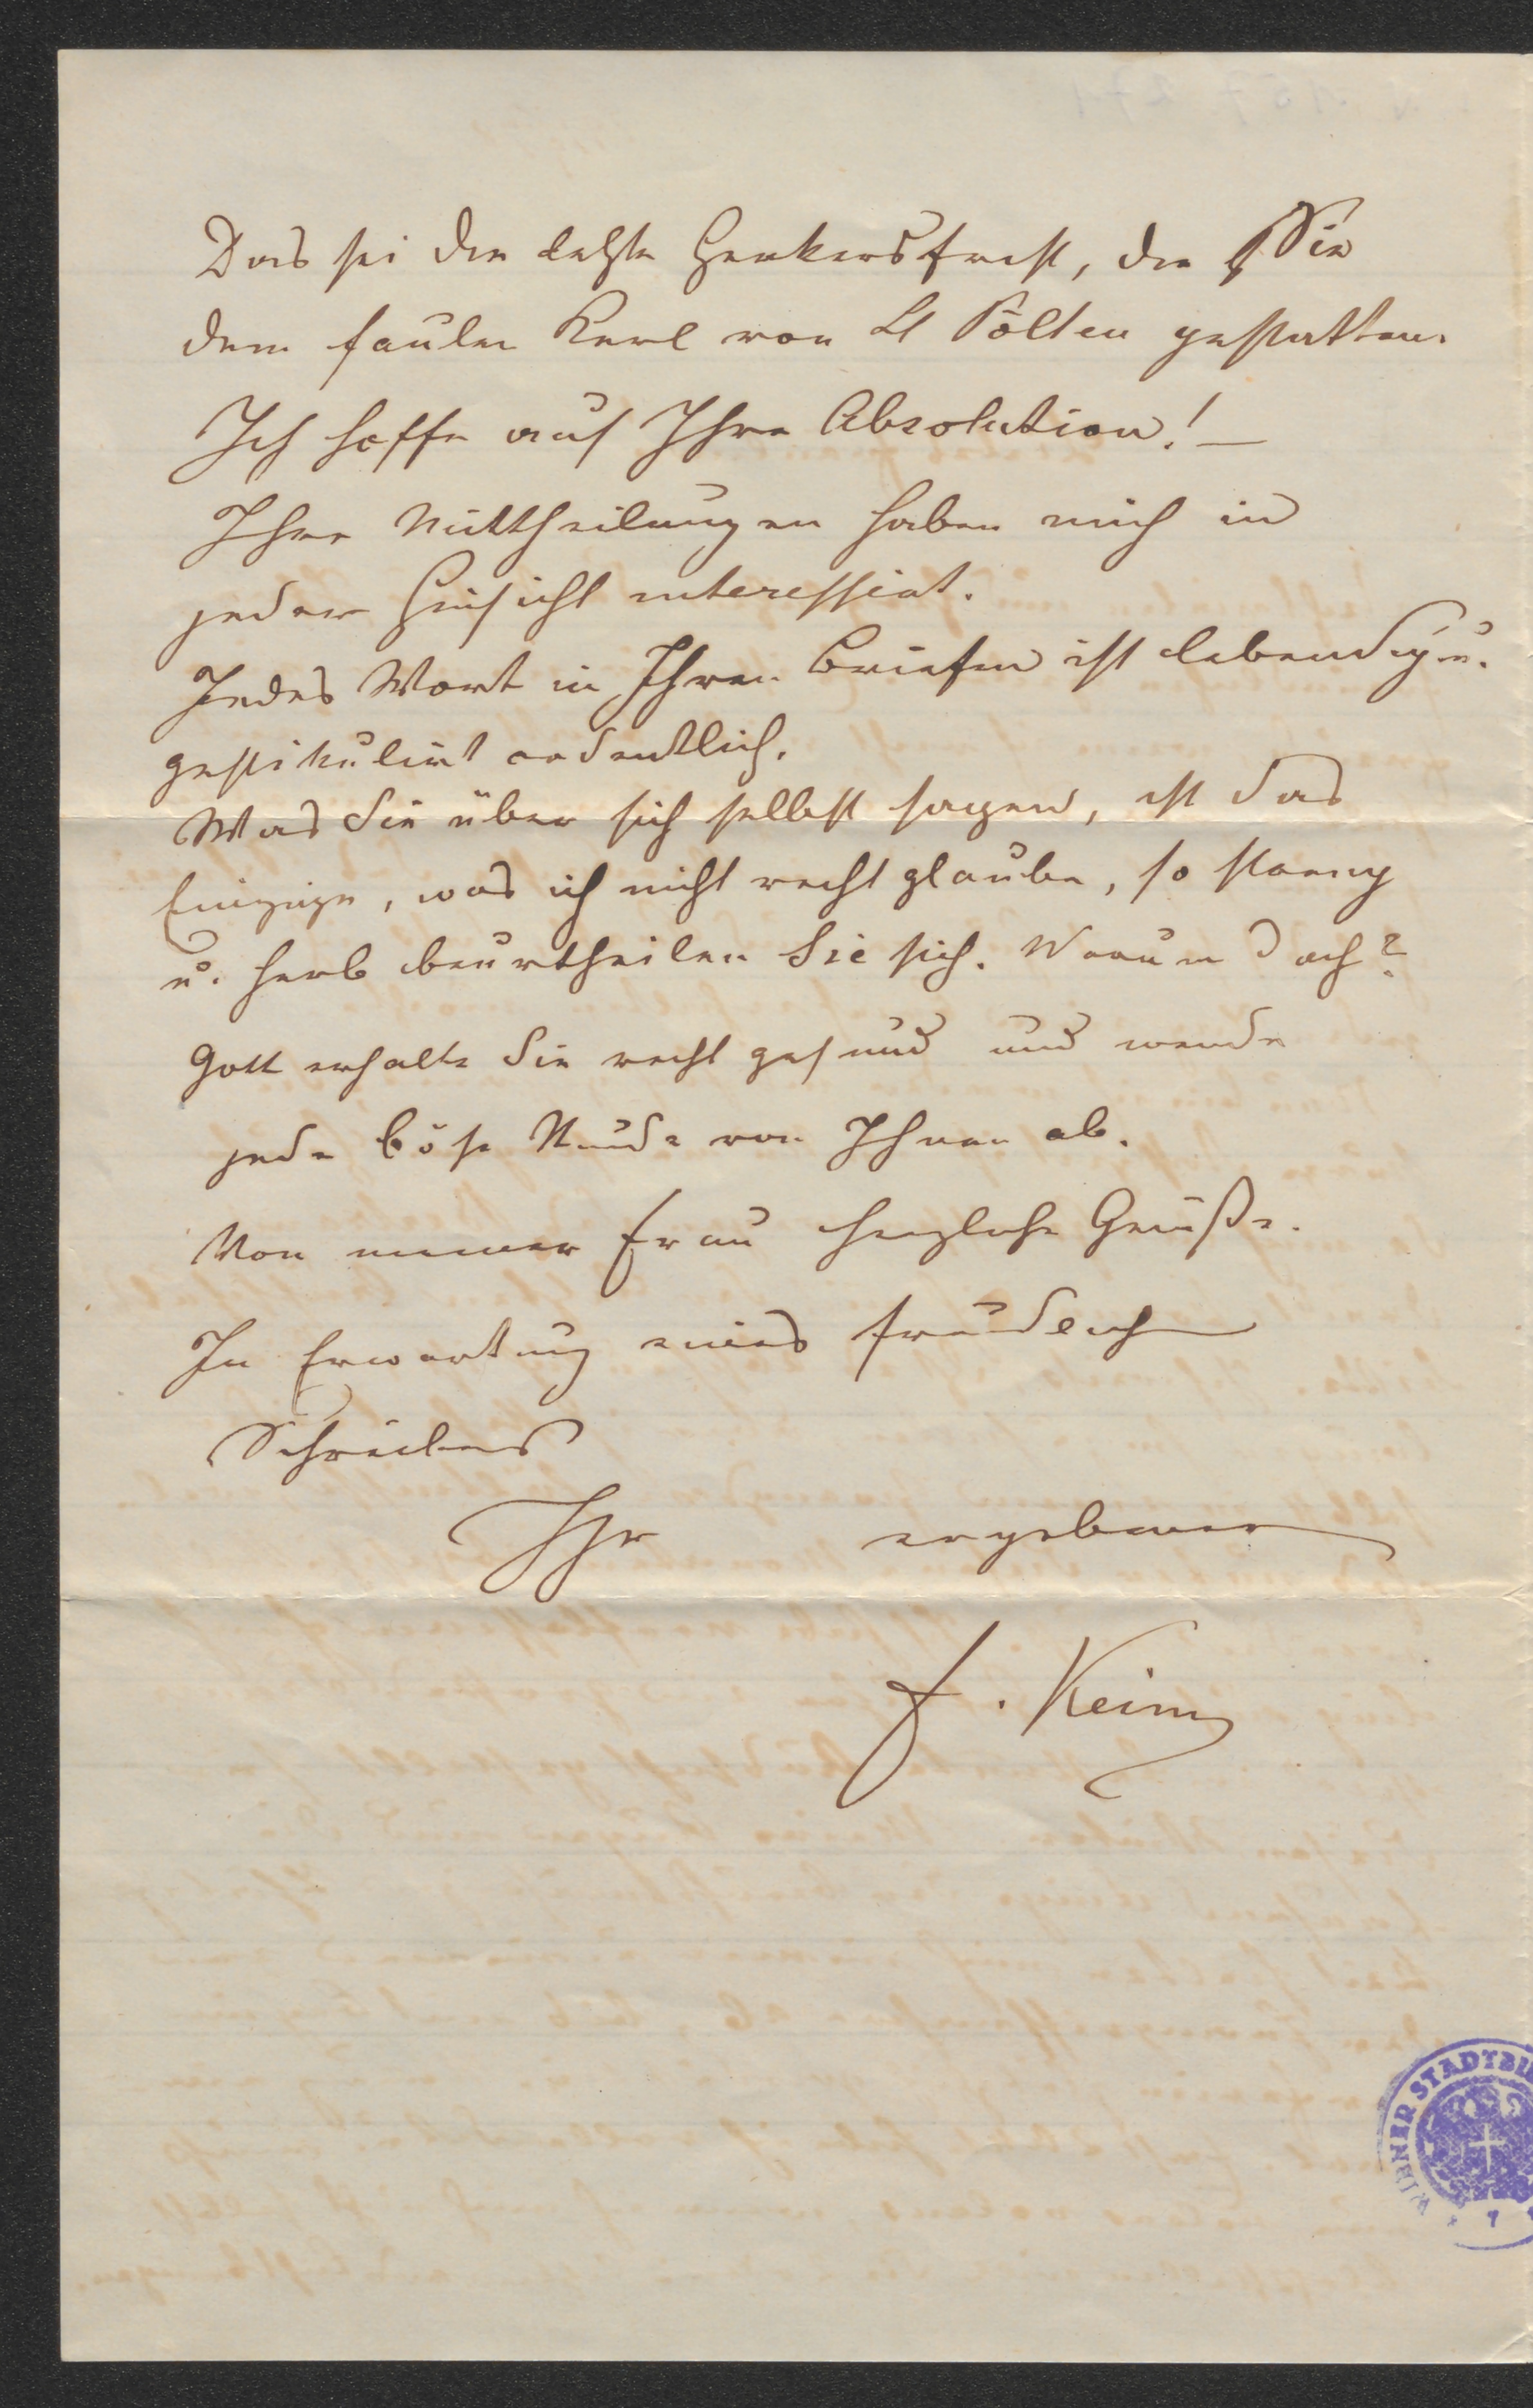 Das sei die letzte Henkersfrist, die Sie
dem faulen Kerl von St Pölten gestatten.
Ich hoffe auf Ihre Absolution! —
Ihre Mittheilungen haben mich in
jeder Hinsicht interessirt.
Jedes Wort in Ihren Briefen ist lebendig u.
gestikulirt ordentlich.
Was Sie über sich selbst sagen, ist das
Einzige, was ich nicht recht glaube, so streng
u. herb beurtheilen Sie sich. Warum doch?
Gott erhalte Sie recht gesund und wende
jede böse Stunde von Ihnen ab.
Von meiner Frau herzliche Grüße.
In Erwartung eines freundlichen
Schreibens
Ihr ergebener
F. Keim
WIENER STADTBI